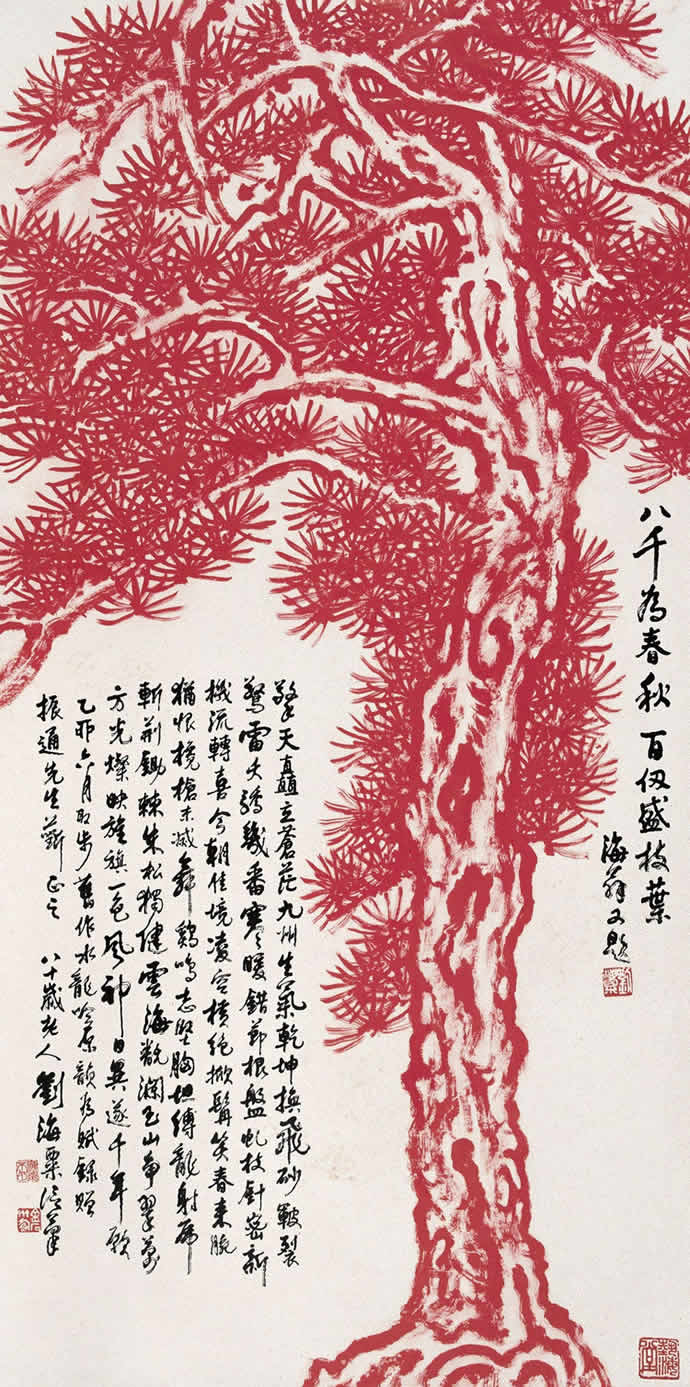 八千為春秋 百仭盛枝葉
海翁又題
擎天矗立蒼茫九州生氣乾坤撫飛砂皺裂
驚雷夭矯幾番寒暖錯節根盤虬枝針密新
機流轉喜今朝佳境凌空橫絕掀髯笑春來晚
猶恨攙槍未滅舞鷄鳴志堅胸坦縛龍射虎
斬荆鋤棘朱松獨健雲海翻瀾玉山争翠萬
方光燦映旌旗一色風神日異遂千年願
乙卯六月取步舊作水龍吟原韻為賦録贈
振通先生蘄正之 八十歲老人劉海粟